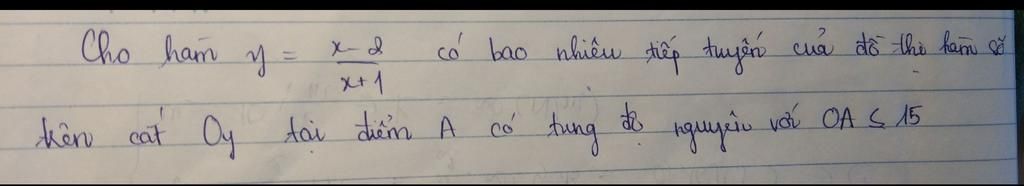 Cho hàm y = \frac{x-2}{x+1} có bao nhiêu tiếp tuyến của đồ thị hàm số
trên cắt Oy tại điểm A có tung độ nguyên với OA ≤ 15